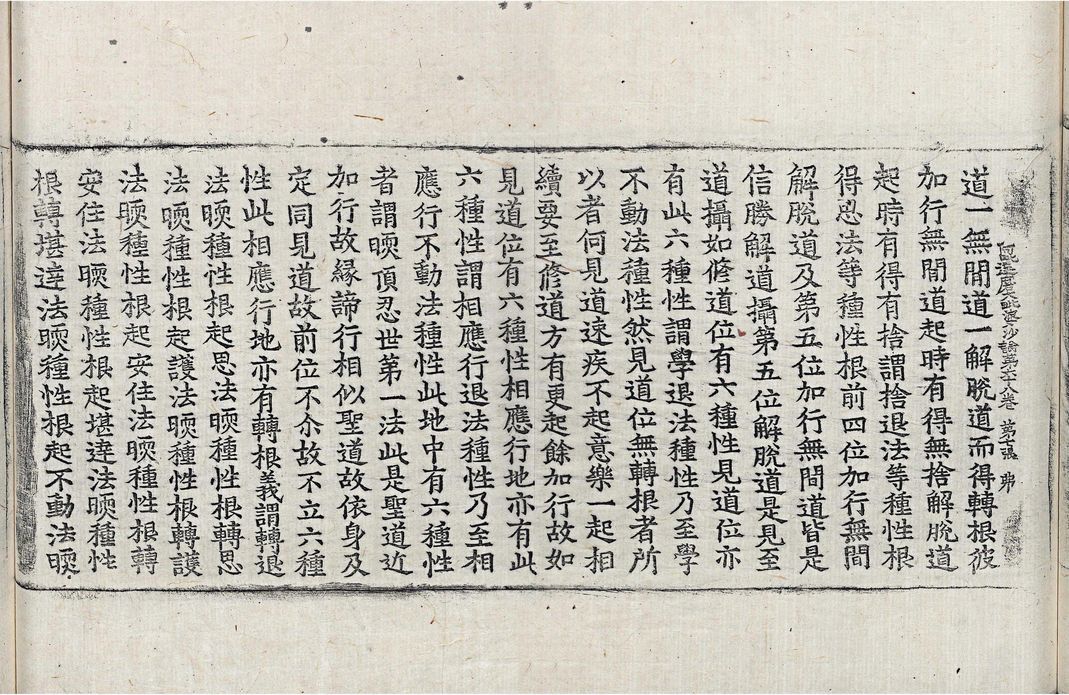 阿毗達磨毗婆沙論第六十八卷 第十二張 弗
道一無間道一解脫道而得轉根彼
加行無間道起時有得無捨解脫道
起時有得有捨謂捨退法等種性根
得思法等種性根前四位加行無間
解脫道及第五位加行無間道皆是
信勝解道攝第五位解脫道是見至
道攝如修道位有六種性見道位亦
有此六種性謂學退法種性乃至學
不動法種性然見道位無轉根者所
以者何見道速疾不起意樂一起相
續要至修道方有更起餘加行故如
見道位有六種性相應行地亦有此
六種性謂相應行退法種性乃至相
應行不動法種性此地中有六種性
者謂暎頂忍世第一法此是聖道近
加行故緣諦行相似聖道故依身及
定同見道故前位不尒故不立六種
性此相應行地亦有轉根義謂轉退
法暎種性根起思法暎種性根轉思
法暎種性根起護法暎種性根轉護
法暎種性根起安住法暎種性根轉
安住法暎種性根起堪達法暎種性
根轉堪達法暎種性根起不動法暎